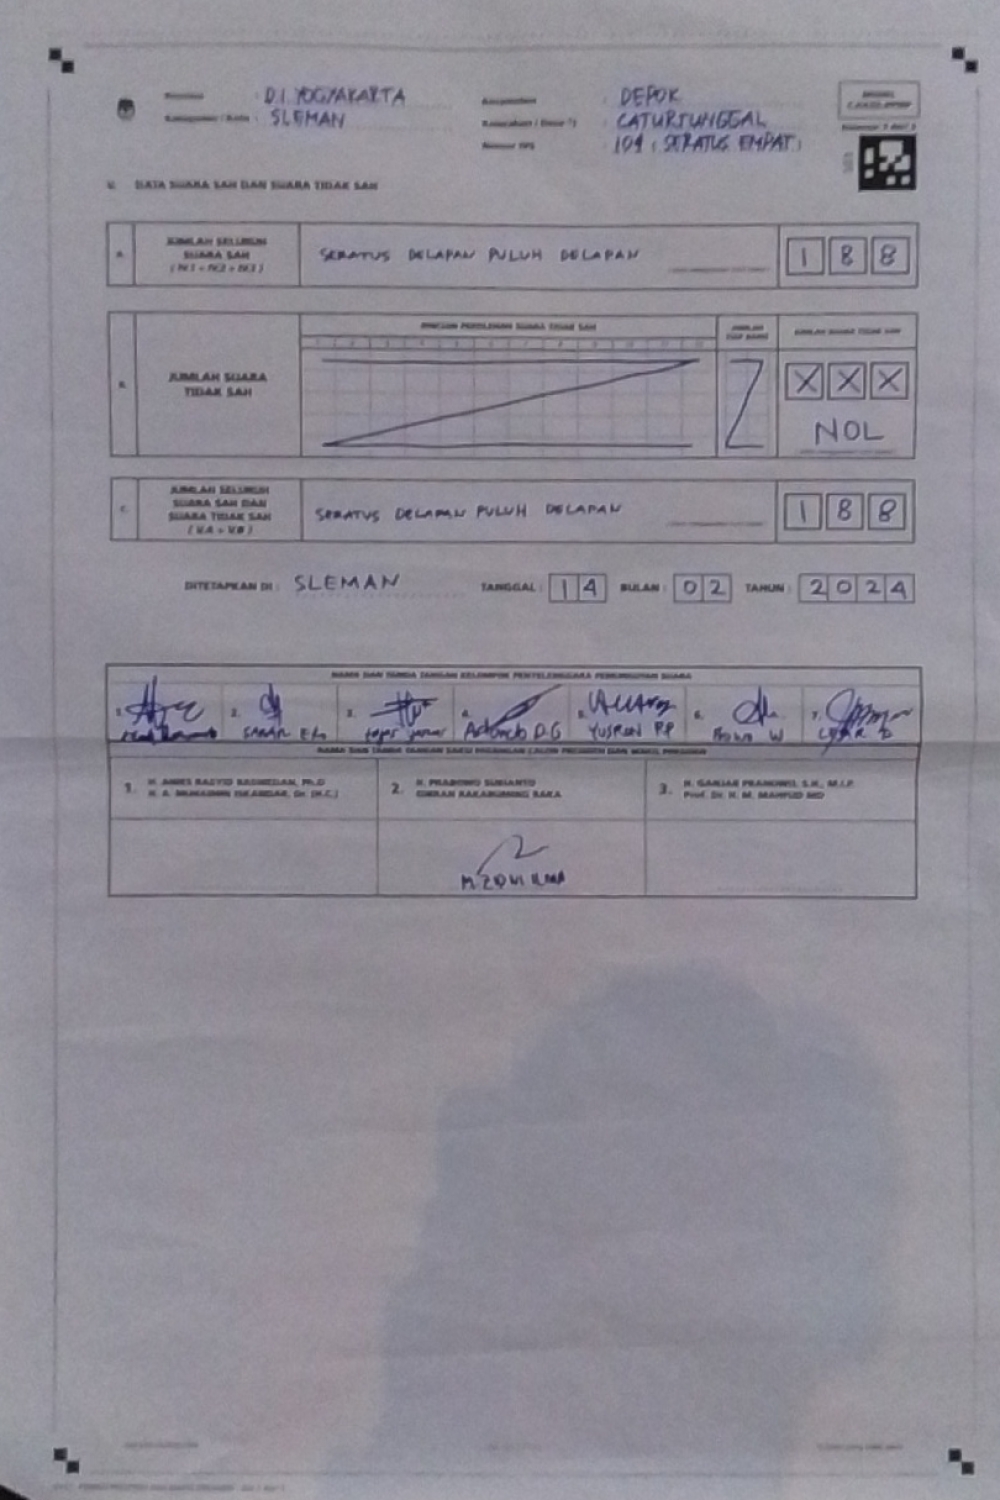 Provinsi : D.I. YOGYAKARTA
Kabupaten / Kota : SLEMAN
Kecamatan : DEPOK
Kelurahan / Desa *) : CATURTUNGGAL
Nomor TPS : 104 (SERATUS EMPAT)
V. DATA SUARA SAH DAN SUARA TIDAK SAH
A. JUMLAH SELURUH SUARA SAH (IV.1 + IV.2 + IV.3)
SERATUS DELAPAN PULUH DELAPAN
1 8 8
RINCIAN PEROLEHAN SUARA TIDAK SAH
JUMLAH SUARA TIDAK SAH
B. JUMLAH SUARA TIDAK SAH
X X X
NOL
C. JUMLAH SELURUH SUARA SAH DAN SUARA TIDAK SAH (V.A + V.B)
SERATUS DELAPAN PULUH DELAPAN
1 8 8
DITETAPKAN DI : SLEMAN TANGGAL : 14 BULAN : 02 TAHUN : 2024
NAMA DAN TANDA TANGAN KELOMPOK PENYELENGGARA PEMUNGUTAN SUARA
1. 2. 3. 4. 5. YUSRON 6. W 7.
NAMA DAN TANDA TANGAN SAKSI PASANGAN CALON PRESIDEN DAN WAKIL PRESIDEN
1. H. ANIES RASYID BASWEDAN, Ph.D
H. A. MUHAIMIN ISKANDAR, Dr. (H.C.)
2. H. PRABOWO SUBIANTO
GIBRAN RAKABUMING RAKA
3. H. GANJAR PRANOWO, S.H., M.I.P.
Prof. Dr. H. M. MAHFUD MD